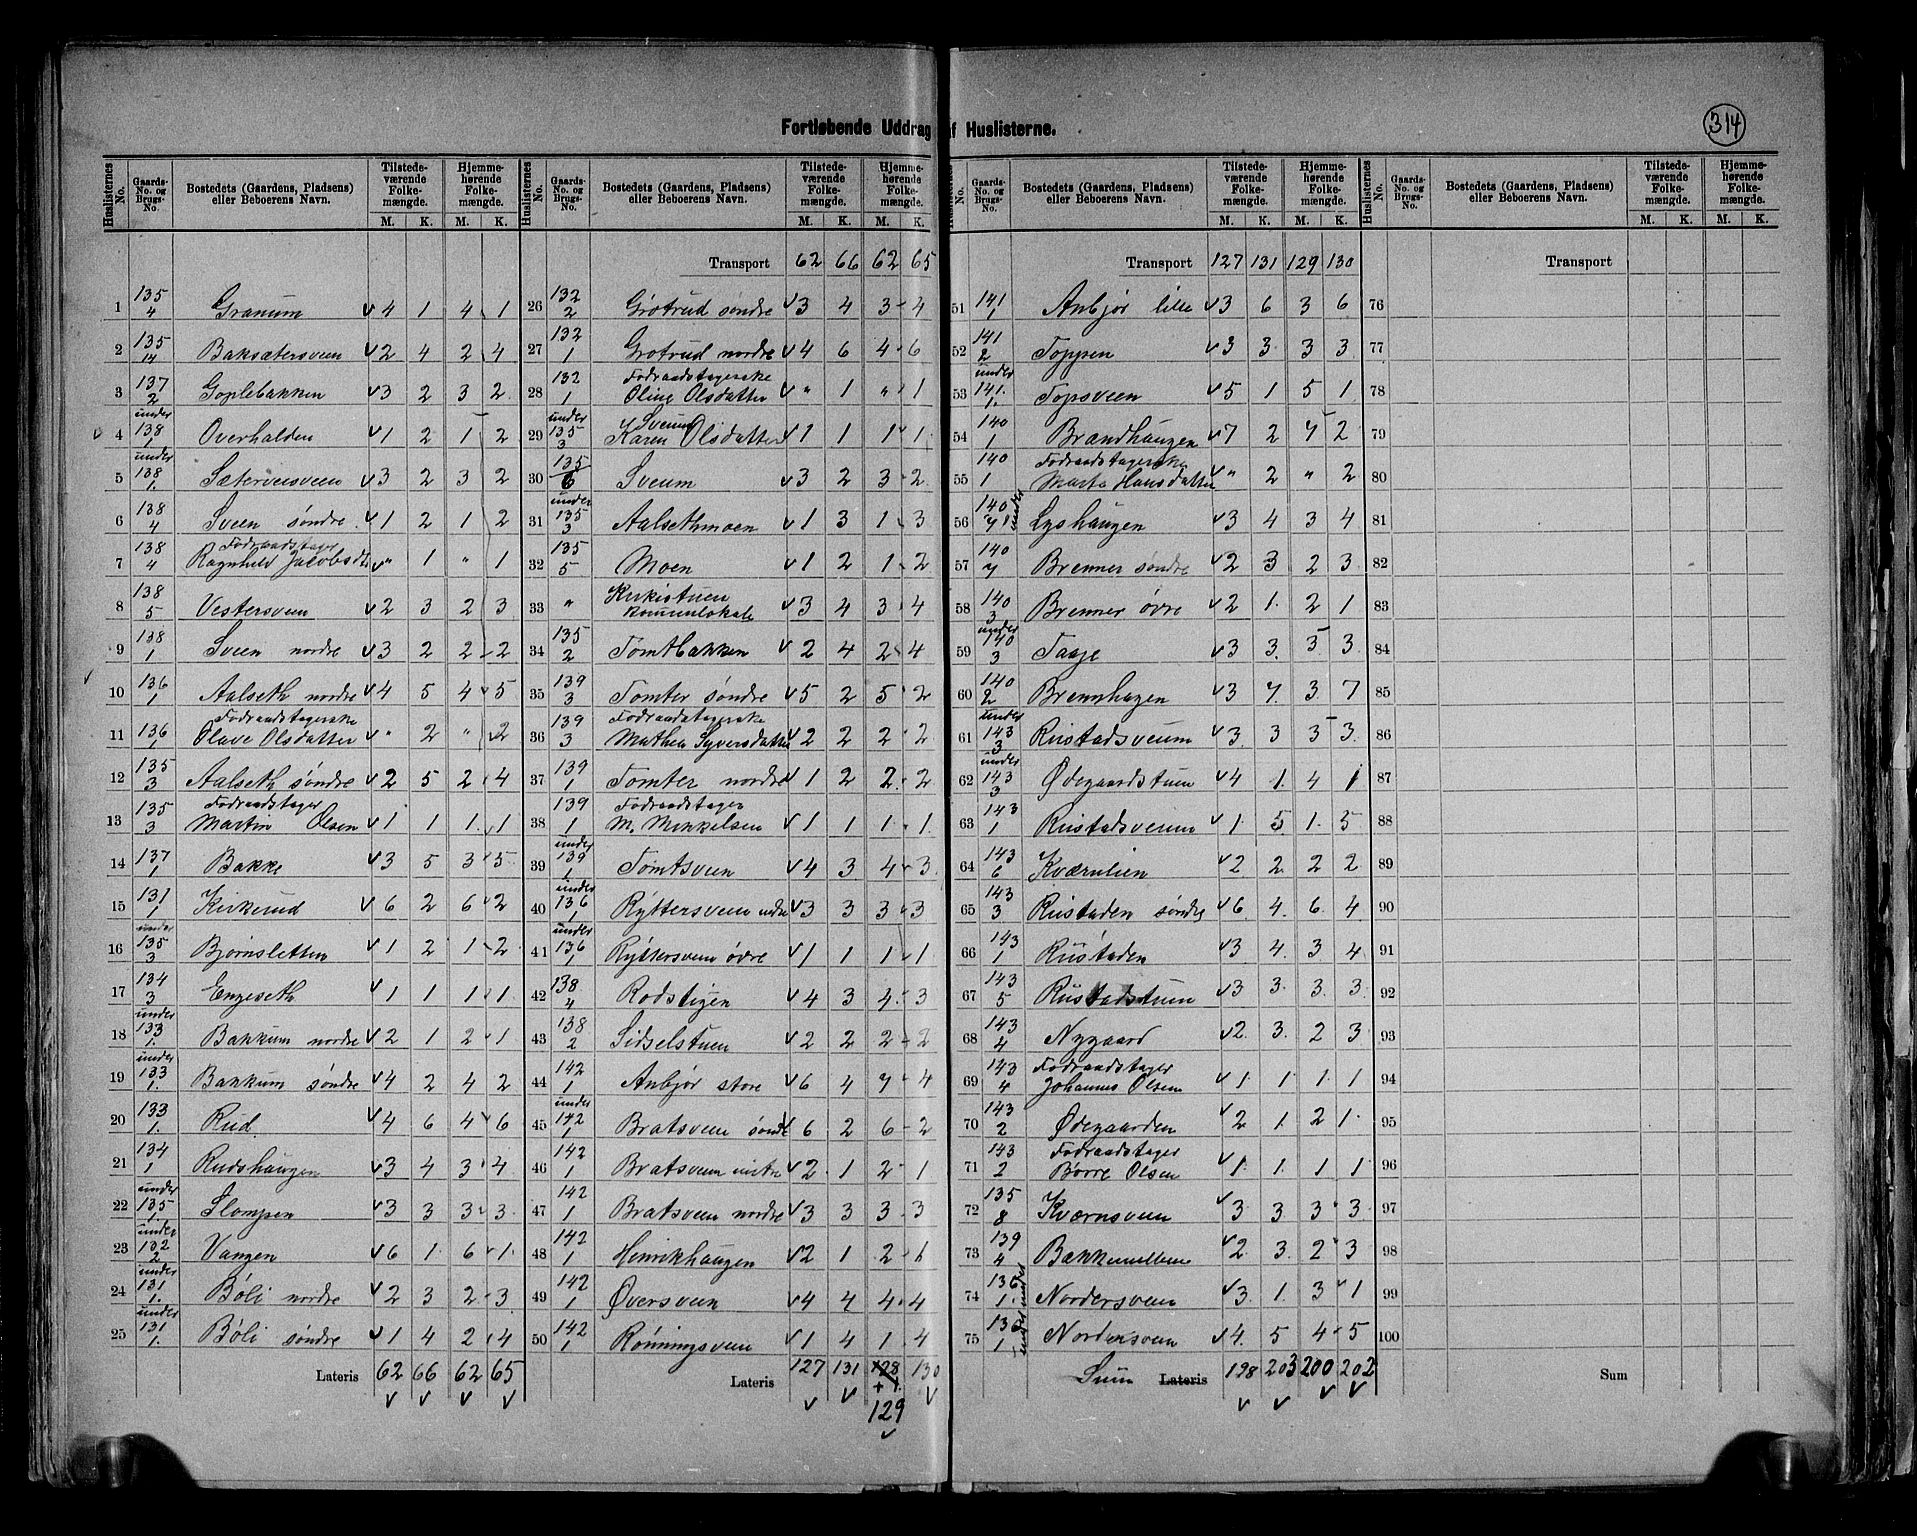 Fortløbende Uddrag af Huslisterne.
314
Huslisternes No. Gaards-No. og Brugs-No. Bostedets (Gaardens, Pladsens) eller Beboerens Navn. Tilstedeværende Folkemængde. M. K. Hjemmehørende Folkemængde. M. K.
1 135/4 Granum 4 1 4 1
2 135/14 Baksætersveen 2 4 2 4
3 137/2 Goplebakken 3 2 3 2
4 under 138/1 Overhalden 1 2 1 2
5 under 138/1 3 2 3 2
6 138/4 Sveen søndre 1 2 1 2
7 138/4 Føderaadstager Ragnhild Jacobsdtr " 1 " 1
8 138/5 Vestersveen 2 3 2 3
9 138/1 Sveen nordre 3 2 2 2
10 136/1 Aalseth nordre 4 5 4 5
11 136/1 Føderaadstagerske Olave Olsdatter " 2 " 2
12 135/3 Aalseth søndre 2 5 2 4
13 135/3 Føderaadstager Martin Olsen 1 1 1 1
14 137/1 Bakke 3 5 3 5
15 131/1 Kirkerud 6 2 6 2
16 under 135/3 Bjørnsletten 1 2 1 2
17 134/3 Engeseth 1 1 1 1
18 under 133/1 Bakkum nordre 2 1 2 1
19 under 133/1 Bakkum søndre 4 2 4 2
20 133/1 Rud 4 6 4 6
21 134/1 Rudshaugen 3 4 3 4
22 under 135/1 Slompen 3 3 3 3
23 under 132/2 Vangen 6 1 6 1
24 under 131/1 Bøli nordre 2 3 2 3
25 under 131/1 Bøli søndre 1 4 2 4
Lateris 62 66 62 65
Transport 62 66 62 65
26 132/2 Grøtrud søndre 3 4 3 4
27 132/1 Grøtrud nordre 4 6 4 6
28 132/1 Føderaadstagerske Oline Olsdatter " 1 " 1
29 under 135/3 Sveum Karen Olsdatter 1 1 1 1
30 135/6 Sveum 3 2 3 2
31 under 135/3 Aalsethmoen 1 3 1 3
32 135/5 Moen 1 2 1 2
33 " Kirkestuen Kommunlokale 3 4 3 4
34 135/2 Tomtbakken 2 4 2 4
35 139/3 Tomter søndre 5 2 5 2
36 139/3 Føderaadstagerske Mathea Syversdatter 2 2 2 2
37 139/1 Tomter nordre 1 2 2 2
38 139/1 Føderaadstager M. Mikkelsen 1 1 1 1
39 under 139/1 Tomtsveen 4 3 4 3
40 under 136/1 Ryttersveen nedre 3 3 3 3
41 under 136 Ryttersveen øvre 1 1 1 1
42 138/4 Rødstigen 4 3 4 3
43 138/2 Sidselstuen 2 2 2 2
44 142/1 Anbjør store 6 4 7 4
45 under 142/1 Bratsveen søndre 6 2 6 2
46 142/1 Bratsveen 2 1 2 1
47 142/1 Bratsveen nordre 3 3 3 3
48 142/1 Henrikhaugen 2 1 2 1
49 142/1 Øversveen 4 4 4 4
50 142/1 Rønningsveen 1 4 1 4
Lateris 127 131 128 130
+ 1
129
Transport 127 131 129 130
51 141/1 Anbjør lille 3 6 3 6
52 141/2 Toppen 3 3 3 3
53 under 141/1 Topsveen 5 1 5 1
54 140/1 Brandhaugen 7 2 7 2
55 140/1 Føderaadstagerske Marte Hansdatter " 2 " 2
56 under 140 Lyshaugen 3 4 3 4
57 140/7 Brenner søndre 2 3 2 3
58 140/3 Brenner øvre 2 1 2 1
59 under 140/3 Taaje 3 3 3 3
60 140/2 Brennhagen 3 7 3 7
61 under 143/3 Rustadsveum 3 3 3 3
62 under 143/3 Ødegaardstuen 4 1 4 1
63 143/1 Rustadsveen 1 5 1 5
64 143/6 Kværnlien 2 2 2 2
65 143/3 Rustaden søndre 6 4 6 4
66 143/1 Rustaden 3 4 3 4
67 143/5 Rustadstuen 3 3 3 3
68 143/4 Nygaard 2 3 2 3
69 143/4 Føderaadstager Johannes Olsen 1 1 1 1
70 143/2 Ødegaarden 2 1 2 1
71 143/2 Føderaadstager Børre Olsen 1 1 1 1
72 135/8 Kværnsveen 3 3 3 3
73 139/4 2 3 2 3
74 under 136/1 Nordersveen 3 1 3 1
75 under Nordersveen 4 5 4 5
Sum Lateris 198 203 200 202
Transport
76
77
78
79
80
81
82
83
84
85
86
87
88
89
90
91
92
93
94
95
96
97
98
99
100
Sum